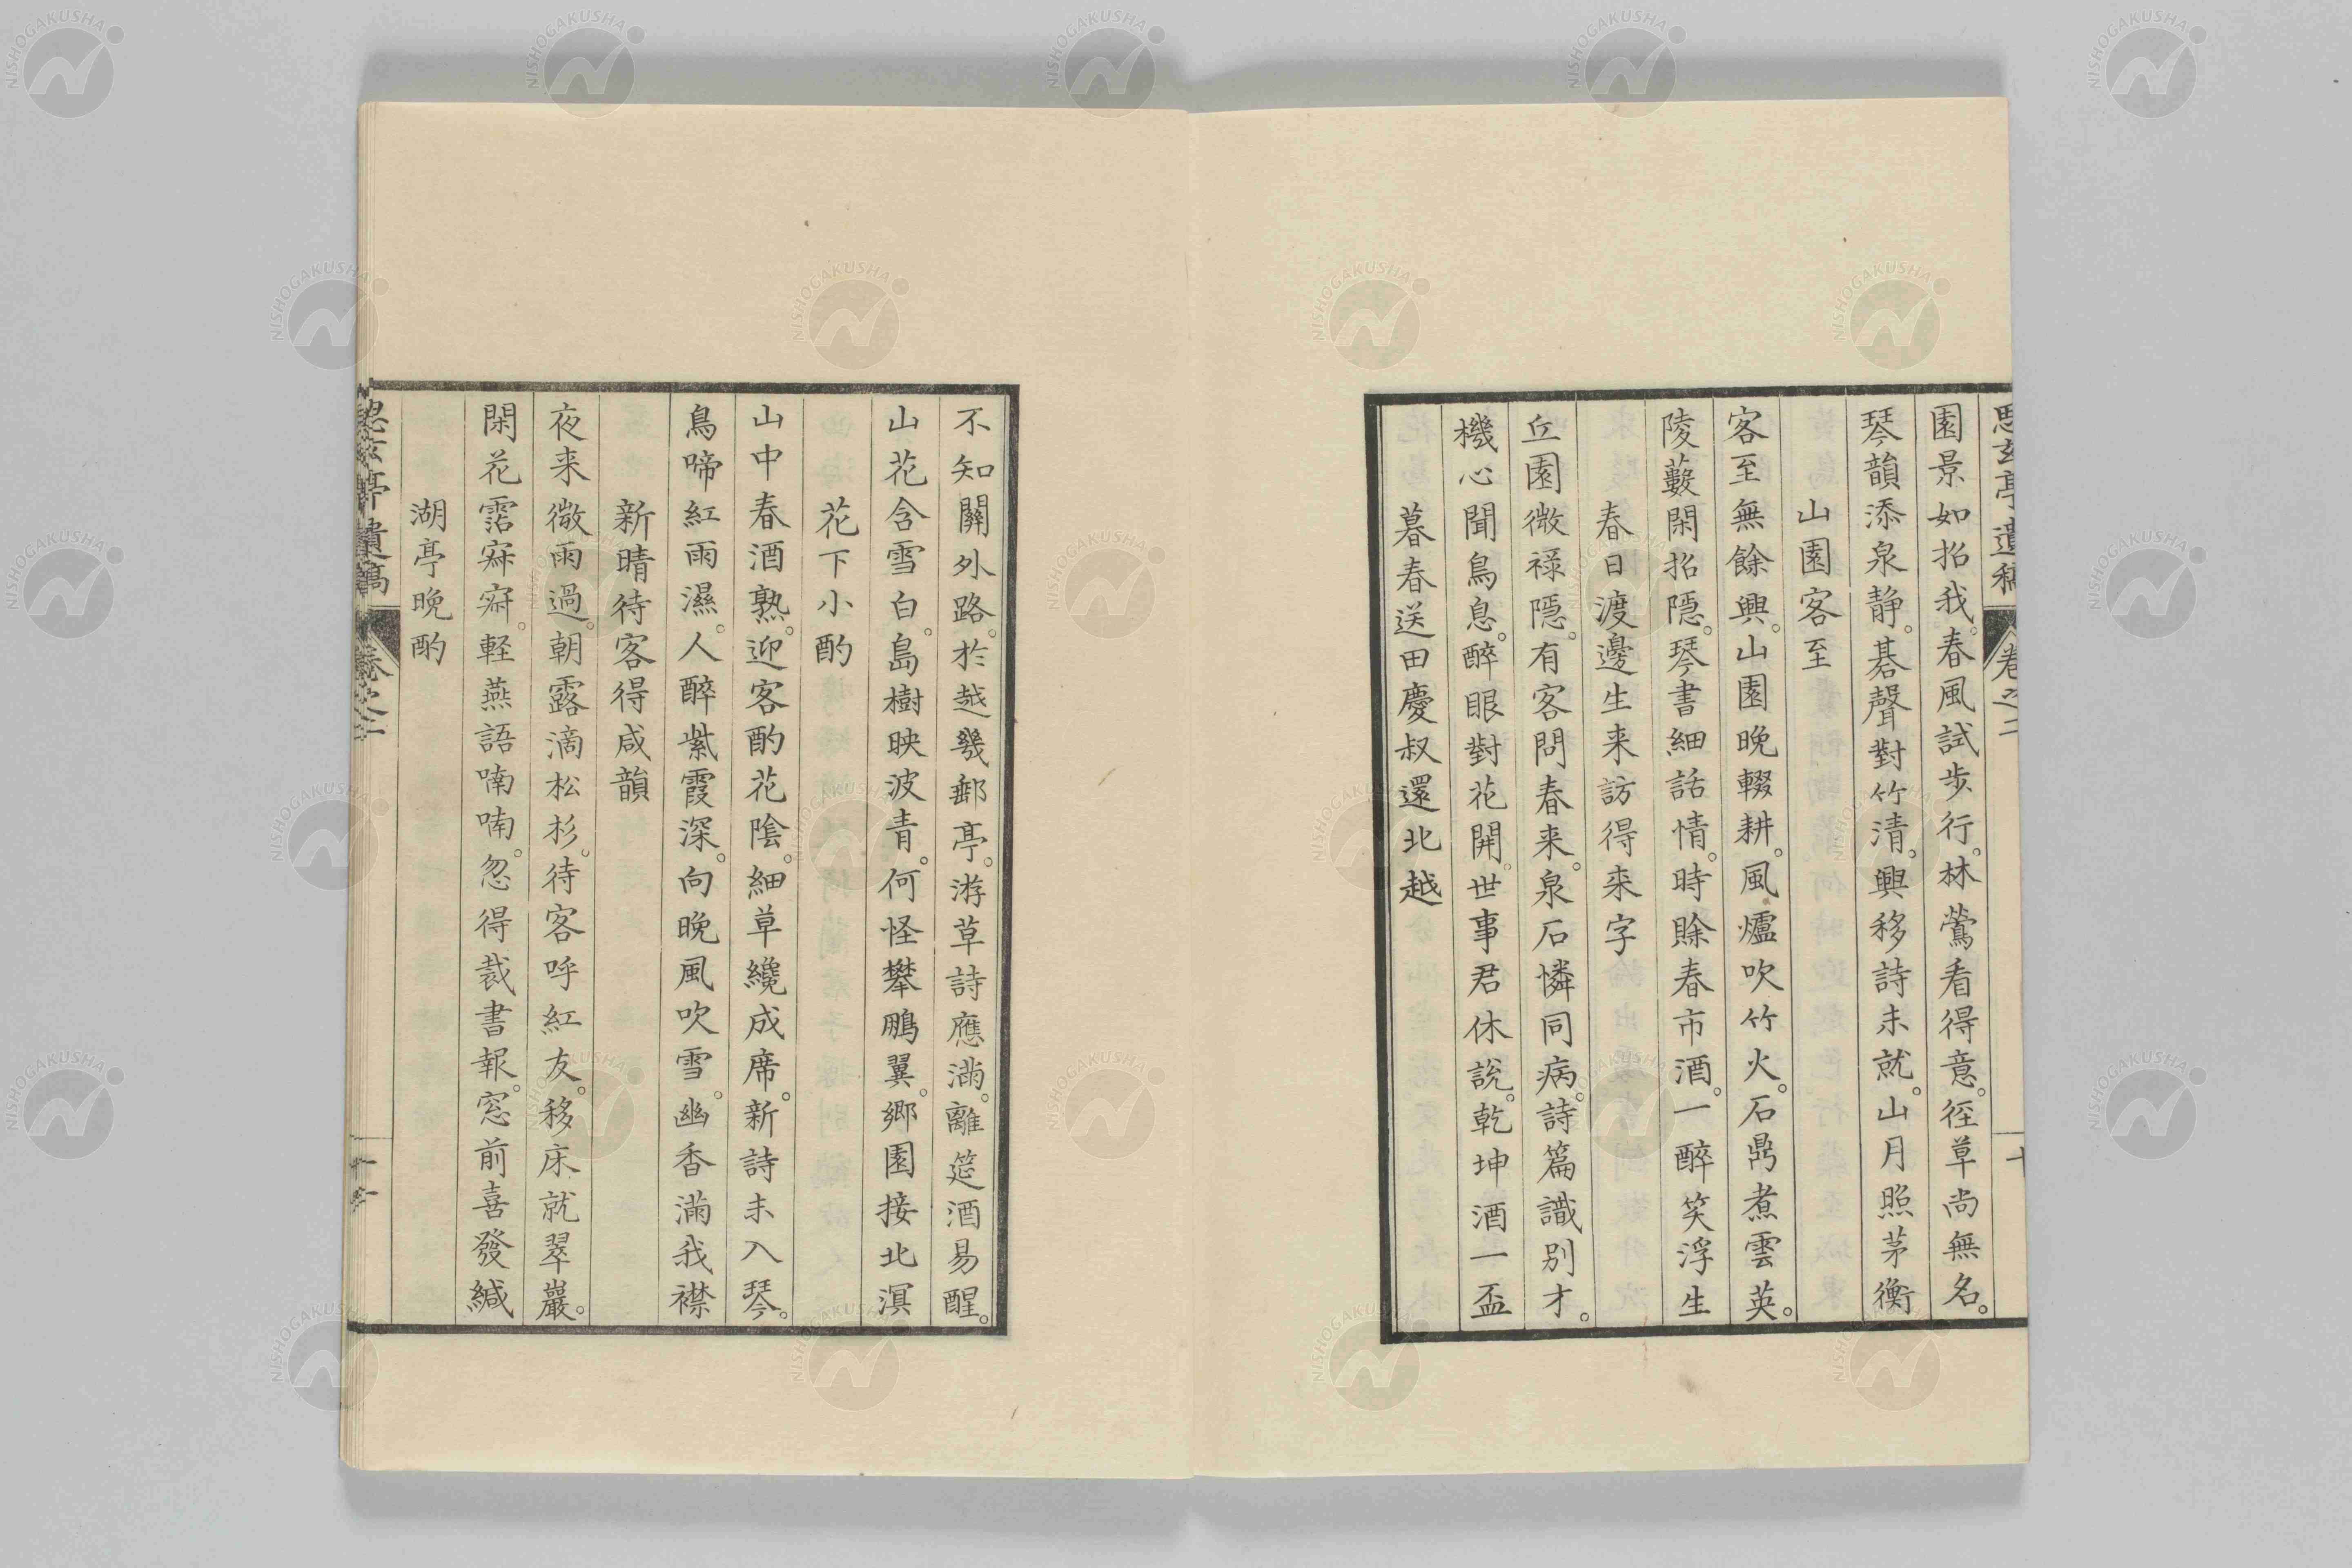 園景如招我。春風試步行。林鶯看得意。徑草尚無名。
琴韻添泉静。碁聲對竹清。興移詩未就。山月照茅衡
山園客至
客至無餘興。山園晚輟耕。風爐吹竹火。石鼎煮雲英。
陵藪閑招隠。琴書細話情。時賖春市酒。一醉笑浮生
春日渡邊生来訪得来字
丘園微祿隠。有客問春来。泉石憐同病。詩篇識別才。
機心聞鳥息。醉眼對花開。世事君休說。乾坤酒一盃
暮春送田慶叔還北越
不知關外路。於越幾郵亭。游草詩應滿。離筵酒易醒。
山花含雪白。島樹映波青。何怪攀鵬翼。鄉園接北溟
花下小酌
山中春酒熟。迎客酌花陰。細草纔成席。新詩未入琴。
鳥啼紅雨濕。人醉紫霞深。向晚風吹雪。幽香滿我襟
新晴待客得咸韻
夜来微雨過。朝露滴松杉。待客呼紅友。移床就翠巖。
閑花霑寂寂。軽燕語喃喃。忽得裁書報。窓前喜發緘
湖亭晚酌
卷之二
NISHOGAKUSHA